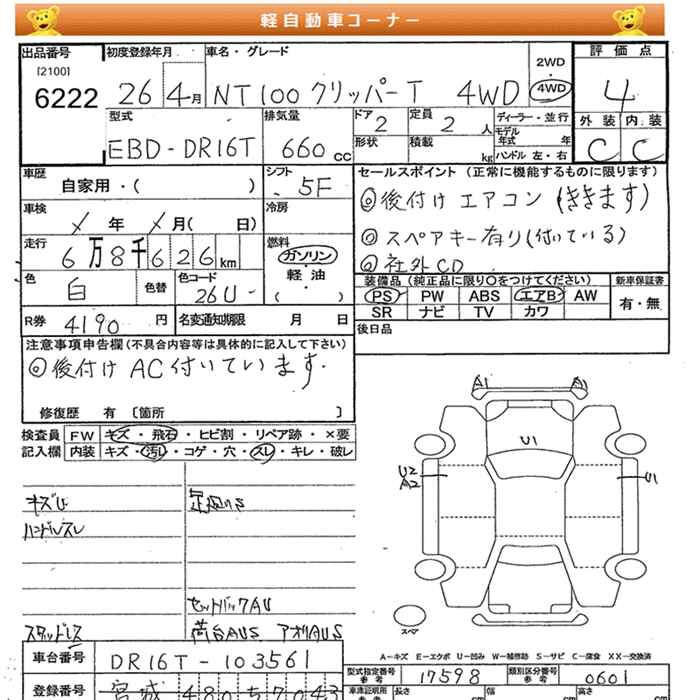 軽自動車コーナー
出品番号 初度登録年月 車名・グレード 評価点
[2100] 6222 26 4月 NT100クリッパーT 4WD 2WD・4WD 4
型式 排気量 ドア 2 定員 2 人 ディーラー・並行 外装 内装
EBD-DR16T 660cc 形状 積載 kg モデル年式 年 ハンドル 左・右 C C
車歴 自家用・( ) シフト 5F セールスポイント (正常に機能するものに限ります)
◎後付けエアコン(ききます)
車検 年 月( 日) 冷房
◎スペアキー有り(付いている)
走行 6万8千626km 燃料 ガソリン・軽油・( )
◎社外CD
色 白 色替 色コード 26U
装備品(純正品に限り○をつけてください) 新車保証書
PS PW ABS エアB AW 有・無
SR ナビ TV カワ
R券 4190円 名変通知期限 月 日 後日品
注意事項申告欄(不具合内容等は具体的に記入して下さい)
◎後付けAC付いています.
修復歴 有 〔箇所 〕
検査員 FW キズ・飛石・ヒビ割・リペア跡・×要
記入欄 内装 キズ・汚レ・コゲ・穴・スレ・キレ・破レ
A1 A1
U1
U2 A2 U1
キズU
ハンドルスレ
セットバックAU
スタッドレス 荷台AUS アオリAUS
スペア
A-キズ E-エクボ U-凹み W-補修跡 S-サビ C-腐食 XX-交換済
車台番号 DR16T-103561 型式指定番号 参考 17598 類別区分番号 参考 0601
登録番号 宮城 480 57043 車庫証明用 参考 長さ cm 幅 cm 高さ cm